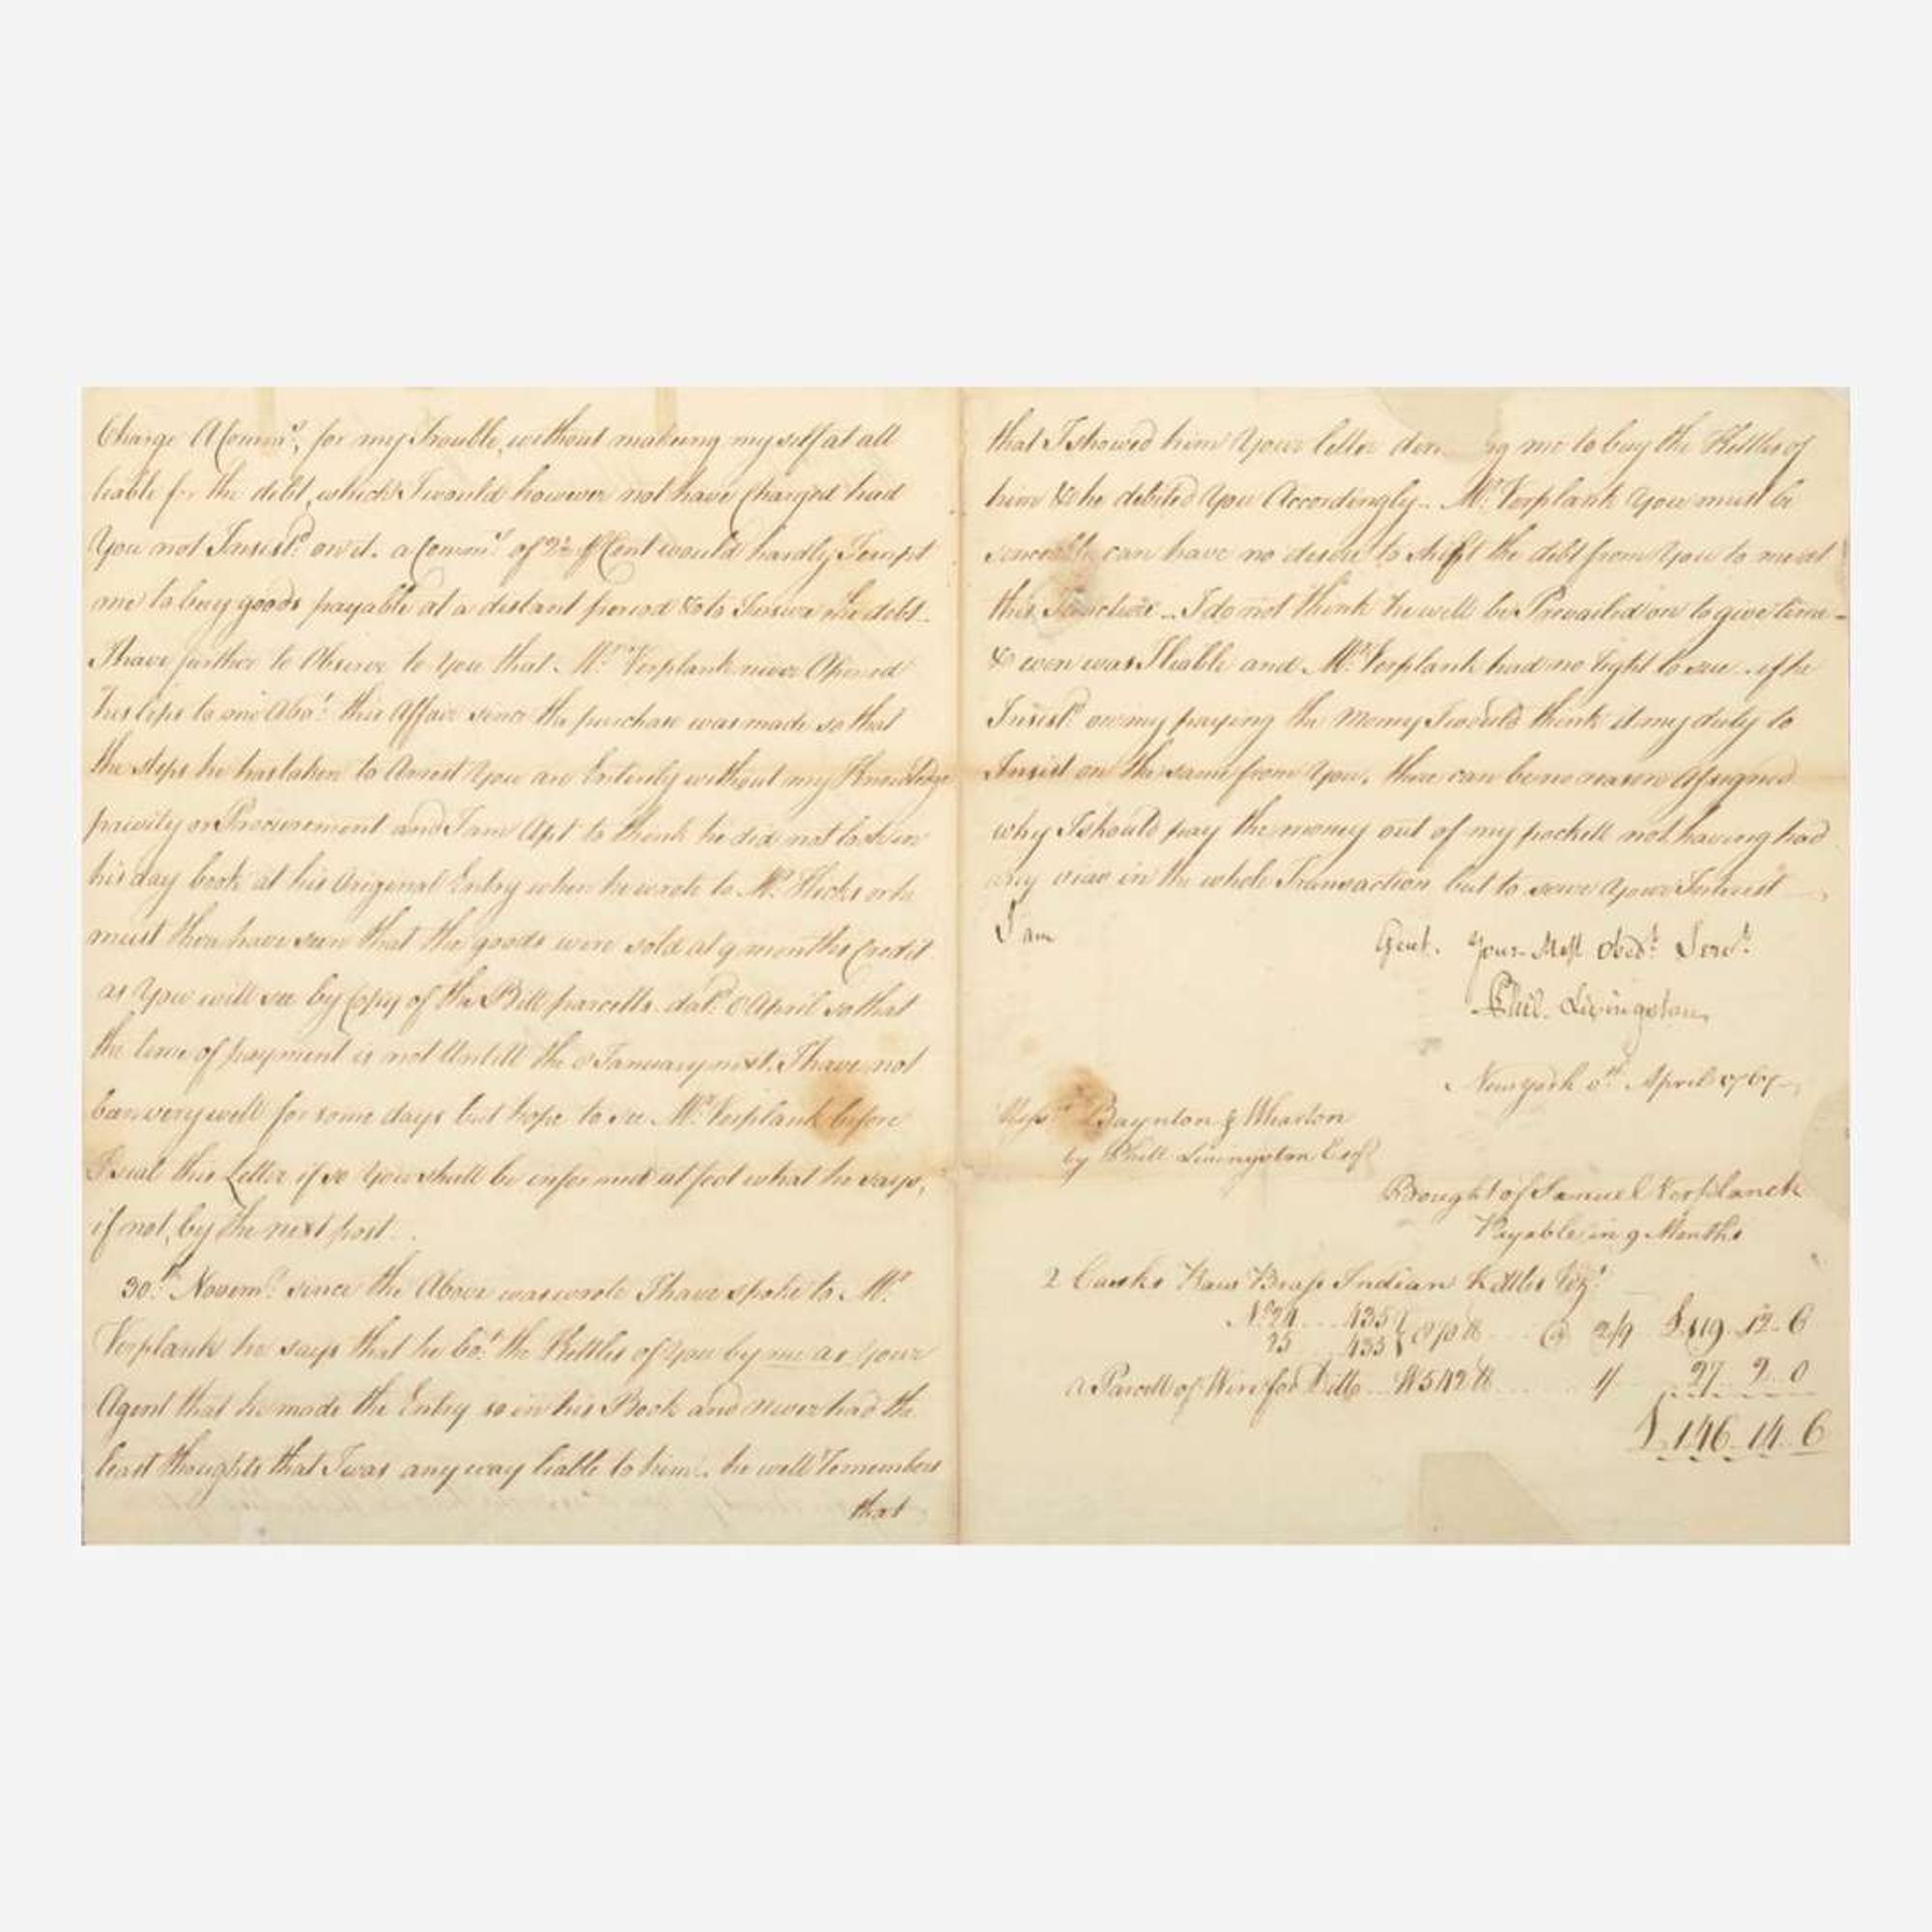 Charge A Commn. for my Trouble, without making my self at all
liable for the debt, which I would however not have Charged had
You not Insistd. on it. a Commn. of 2½ ⅌ Cent would hardly Tempt
me to buy goods payable at a distant period & to Insure the debt.
I have further to Observe to You that Mr. Verplank never Opened
his lips to me Abot. this Affair since the purchase was made so that
the steps he has taken to Arrest You are Entirely without my Knowledge
privity or Procurement and I am Apt to think he did not look in
his day book at his Original Entry when he wrote to Mr. Hicks or he
must then have seen that the goods were sold at 9 months Credit
as You will see by Copy of the Bill parcells datd. 8 April so that
the time of payment is not Untill the 8 January next. I have not
been very well for some days but hope to see Mr. Verplank before
I seal this Letter if so You shall be informed at foot what he says,
if not, by the next post.
30th. Novemr. since the Above was wrote I have spoke to Mr.
Verplank he says that he the Kettles of you by me as your
Agent that he made the Entry so in his Book and never had the
least thoughts that I was any way liable to him. he well remembers
that
that I showed him Your letter me to buy the Kettles of
him & he debited You Accordingly.. Mr. Verplank You must be
can have no desire to shift the debt from You to me at
this Juncture.. I do not think he will be Prevailed on to give time -
& even was I liable and Mr. Verplank had no right to sue .. if he
Insistd. on my paying the Money I would think it my duty to
Insist on the same from You. there can be no reason Assigned
why I should pay the money out of my pockett not having had
any view in the whole Transaction but to serve Your Interest
I am
Gent. Your Most Obedt. Servt.
Phil. Livingston
New York 8th April 1767
Messrs. Baynton & Wharton
by Phill Livingston Esqr
Bought of Samuel Verplanck
Payable in 9 Months
2 Casks Brass Indian Kettles Vizt.
No. 24 .... 435
25 .... 435 870 lb .... @ 2/9 £119..12..6
a Parcell of Wire for Ditto .. 542 lb .... 1/ 27..2..0
£146..14..6